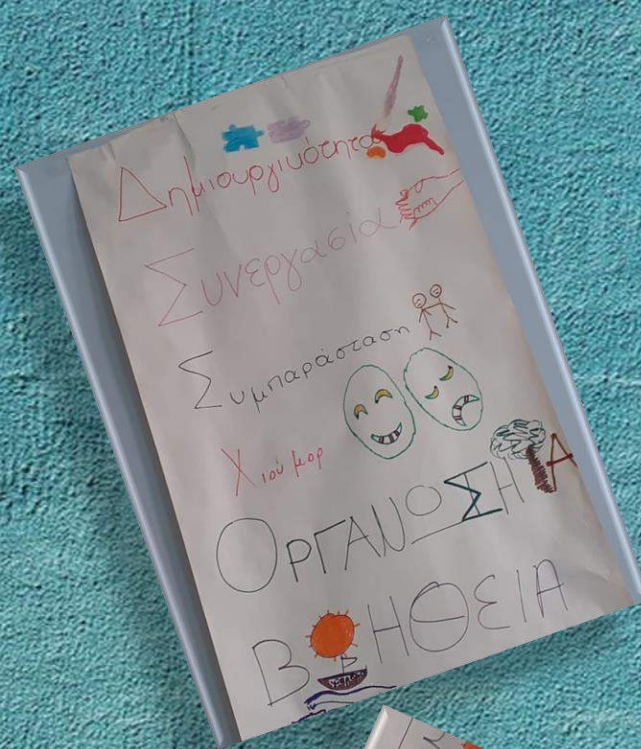 Δημιουργικότητα
Συνεργασία
Συμπαράσταση
Χιούμορ
ΟΡΓΑΝΩΣΗ
ΒΟΗΘΕΙΑ